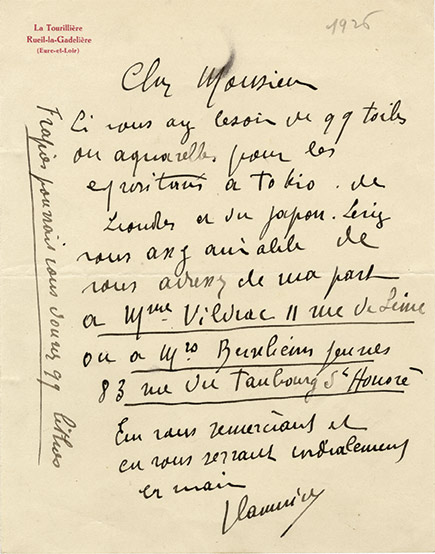 La Tourillière
Rueil-la-Gadelière
(Eure-et-Loir)
1926
Cher Monsieur
Si vous avez besoin de qq toiles
ou aquarelles pour les
expositions a Tokio. de
Londres et du Japon. Seriez
vous assez aimable de
vous adresser de ma part
a Mme Vildrac 11 rue de Seine
ou a Mrs Bernheim jeunes
83 rue du Faubourg St Honoré
En vous remerciant et
en vous serrant cordialement
la main
Vlaminck
Frapier pourrait vous donner qq lithos